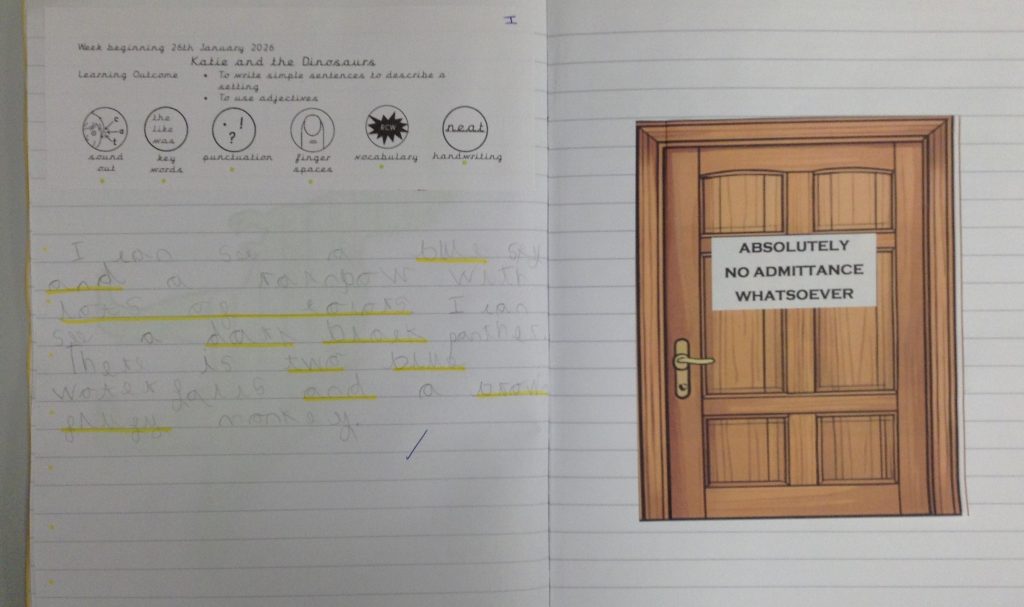 I
Week beginning 26th January 2026
Katie and the Dinosaurs
Learning Outcome
• To write simple sentences to describe a
setting
• To use adjectives
c
a
t
the
like
was
. !
?
RCW
neat
sound
out
key
words
punctuation
finger
spaces
vocabulary
handwriting
I can see a blue sky
and a rainbow with
lots of colors I can
see a dark black panther.
There is two blue
water falls and a
monkey.
ABSOLUTELY
NO ADMITTANCE
WHATSOEVER